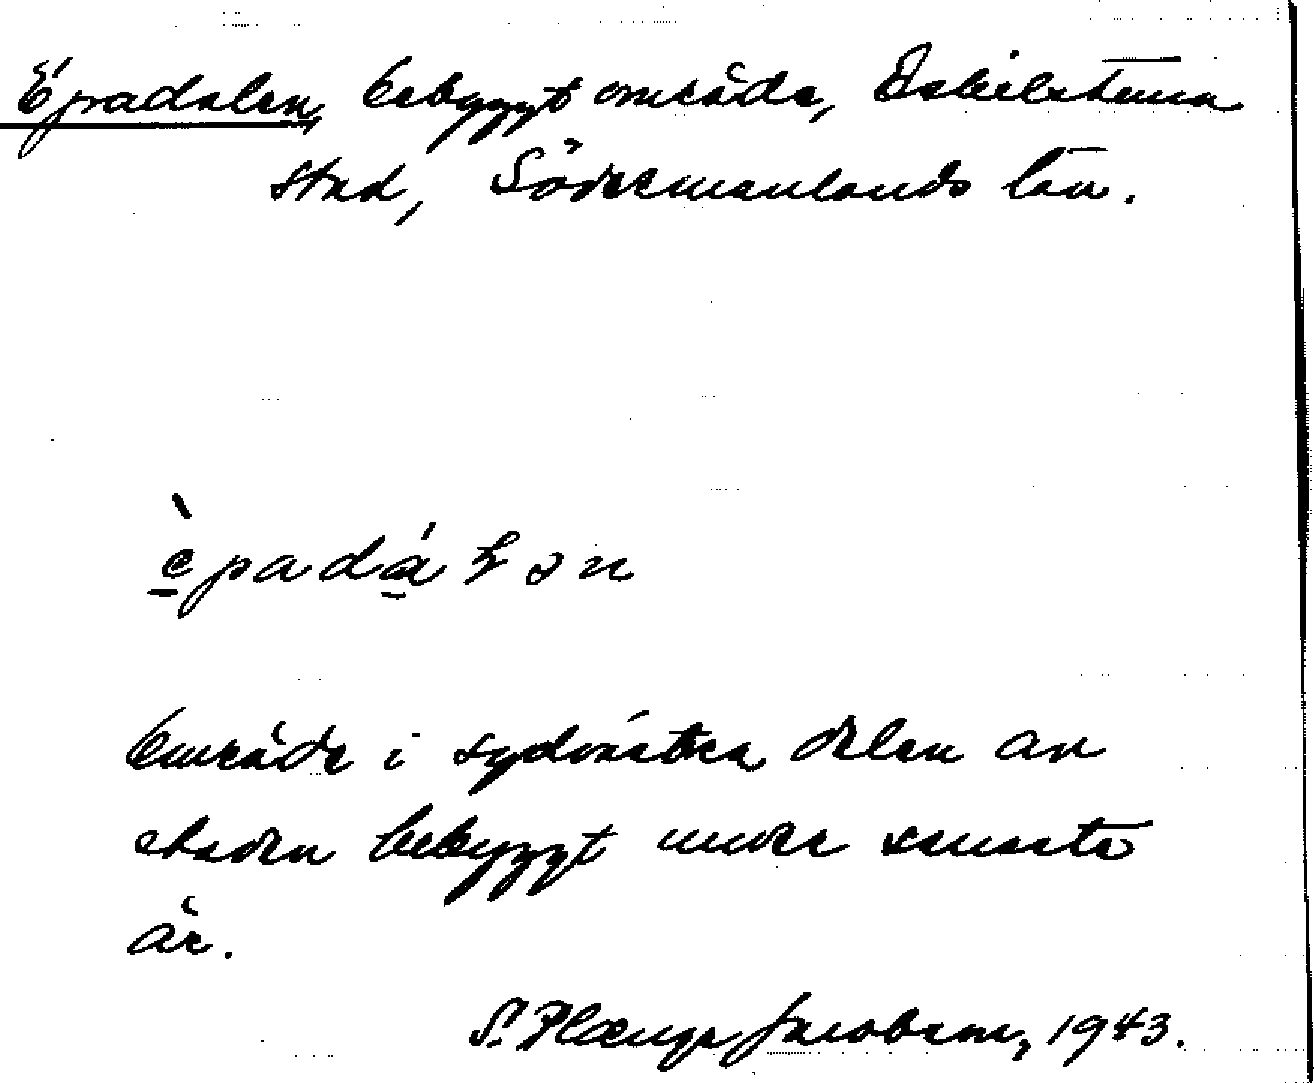 Épadalen, bebyggt område, Eskilstuna
stad, Södermanlands län.
è̠padá̠ɫən
Område i sydvästra delen av
staden bebyggt under senaste
år.
S. Plænge Jacobson, 1943.